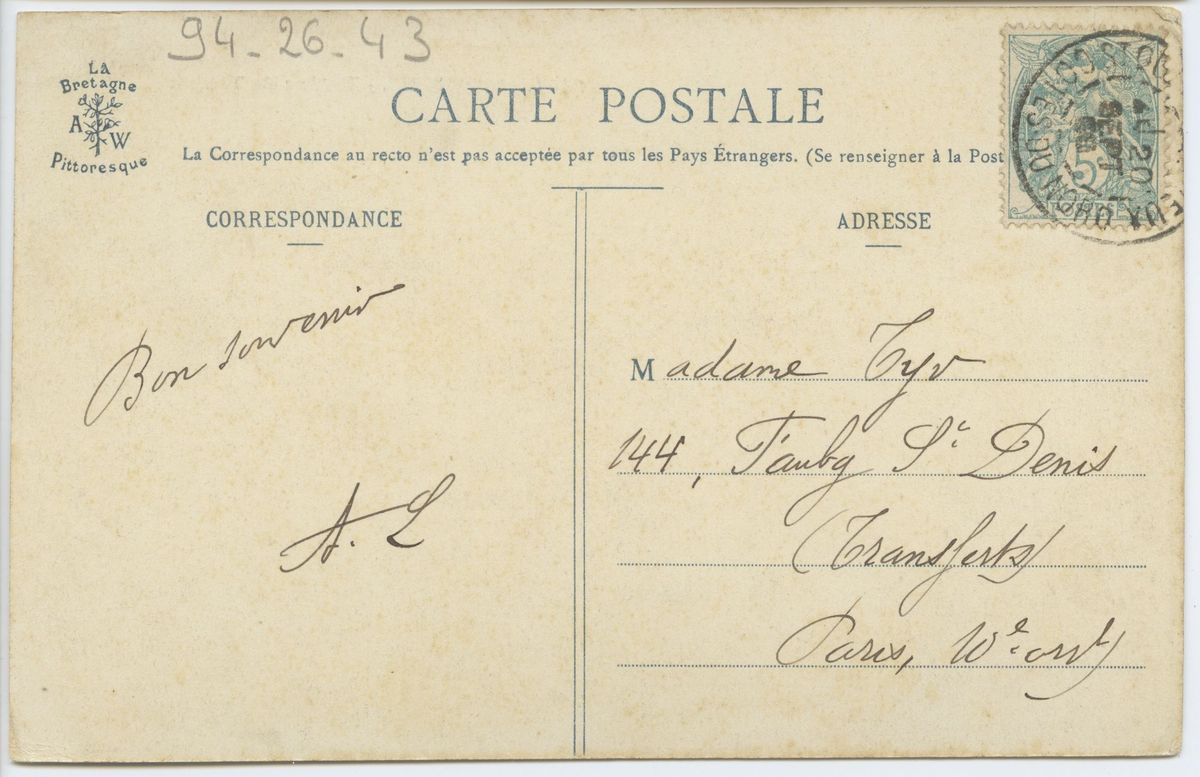 94-26-43
La
Bretagne
A W
Pittoresque
CARTE POSTALE
La Correspondance au recto n'est pas acceptée par tous les Pays Étrangers. (Se renseigner à la Post
CORRESPONDANCE
ADRESSE
4 20
SEPT
COTES DU NORD
5
Bon souvenir
A. L
Madame Tyv
144, Faubg St Denis
(Transferts)
Paris, Xe arrt